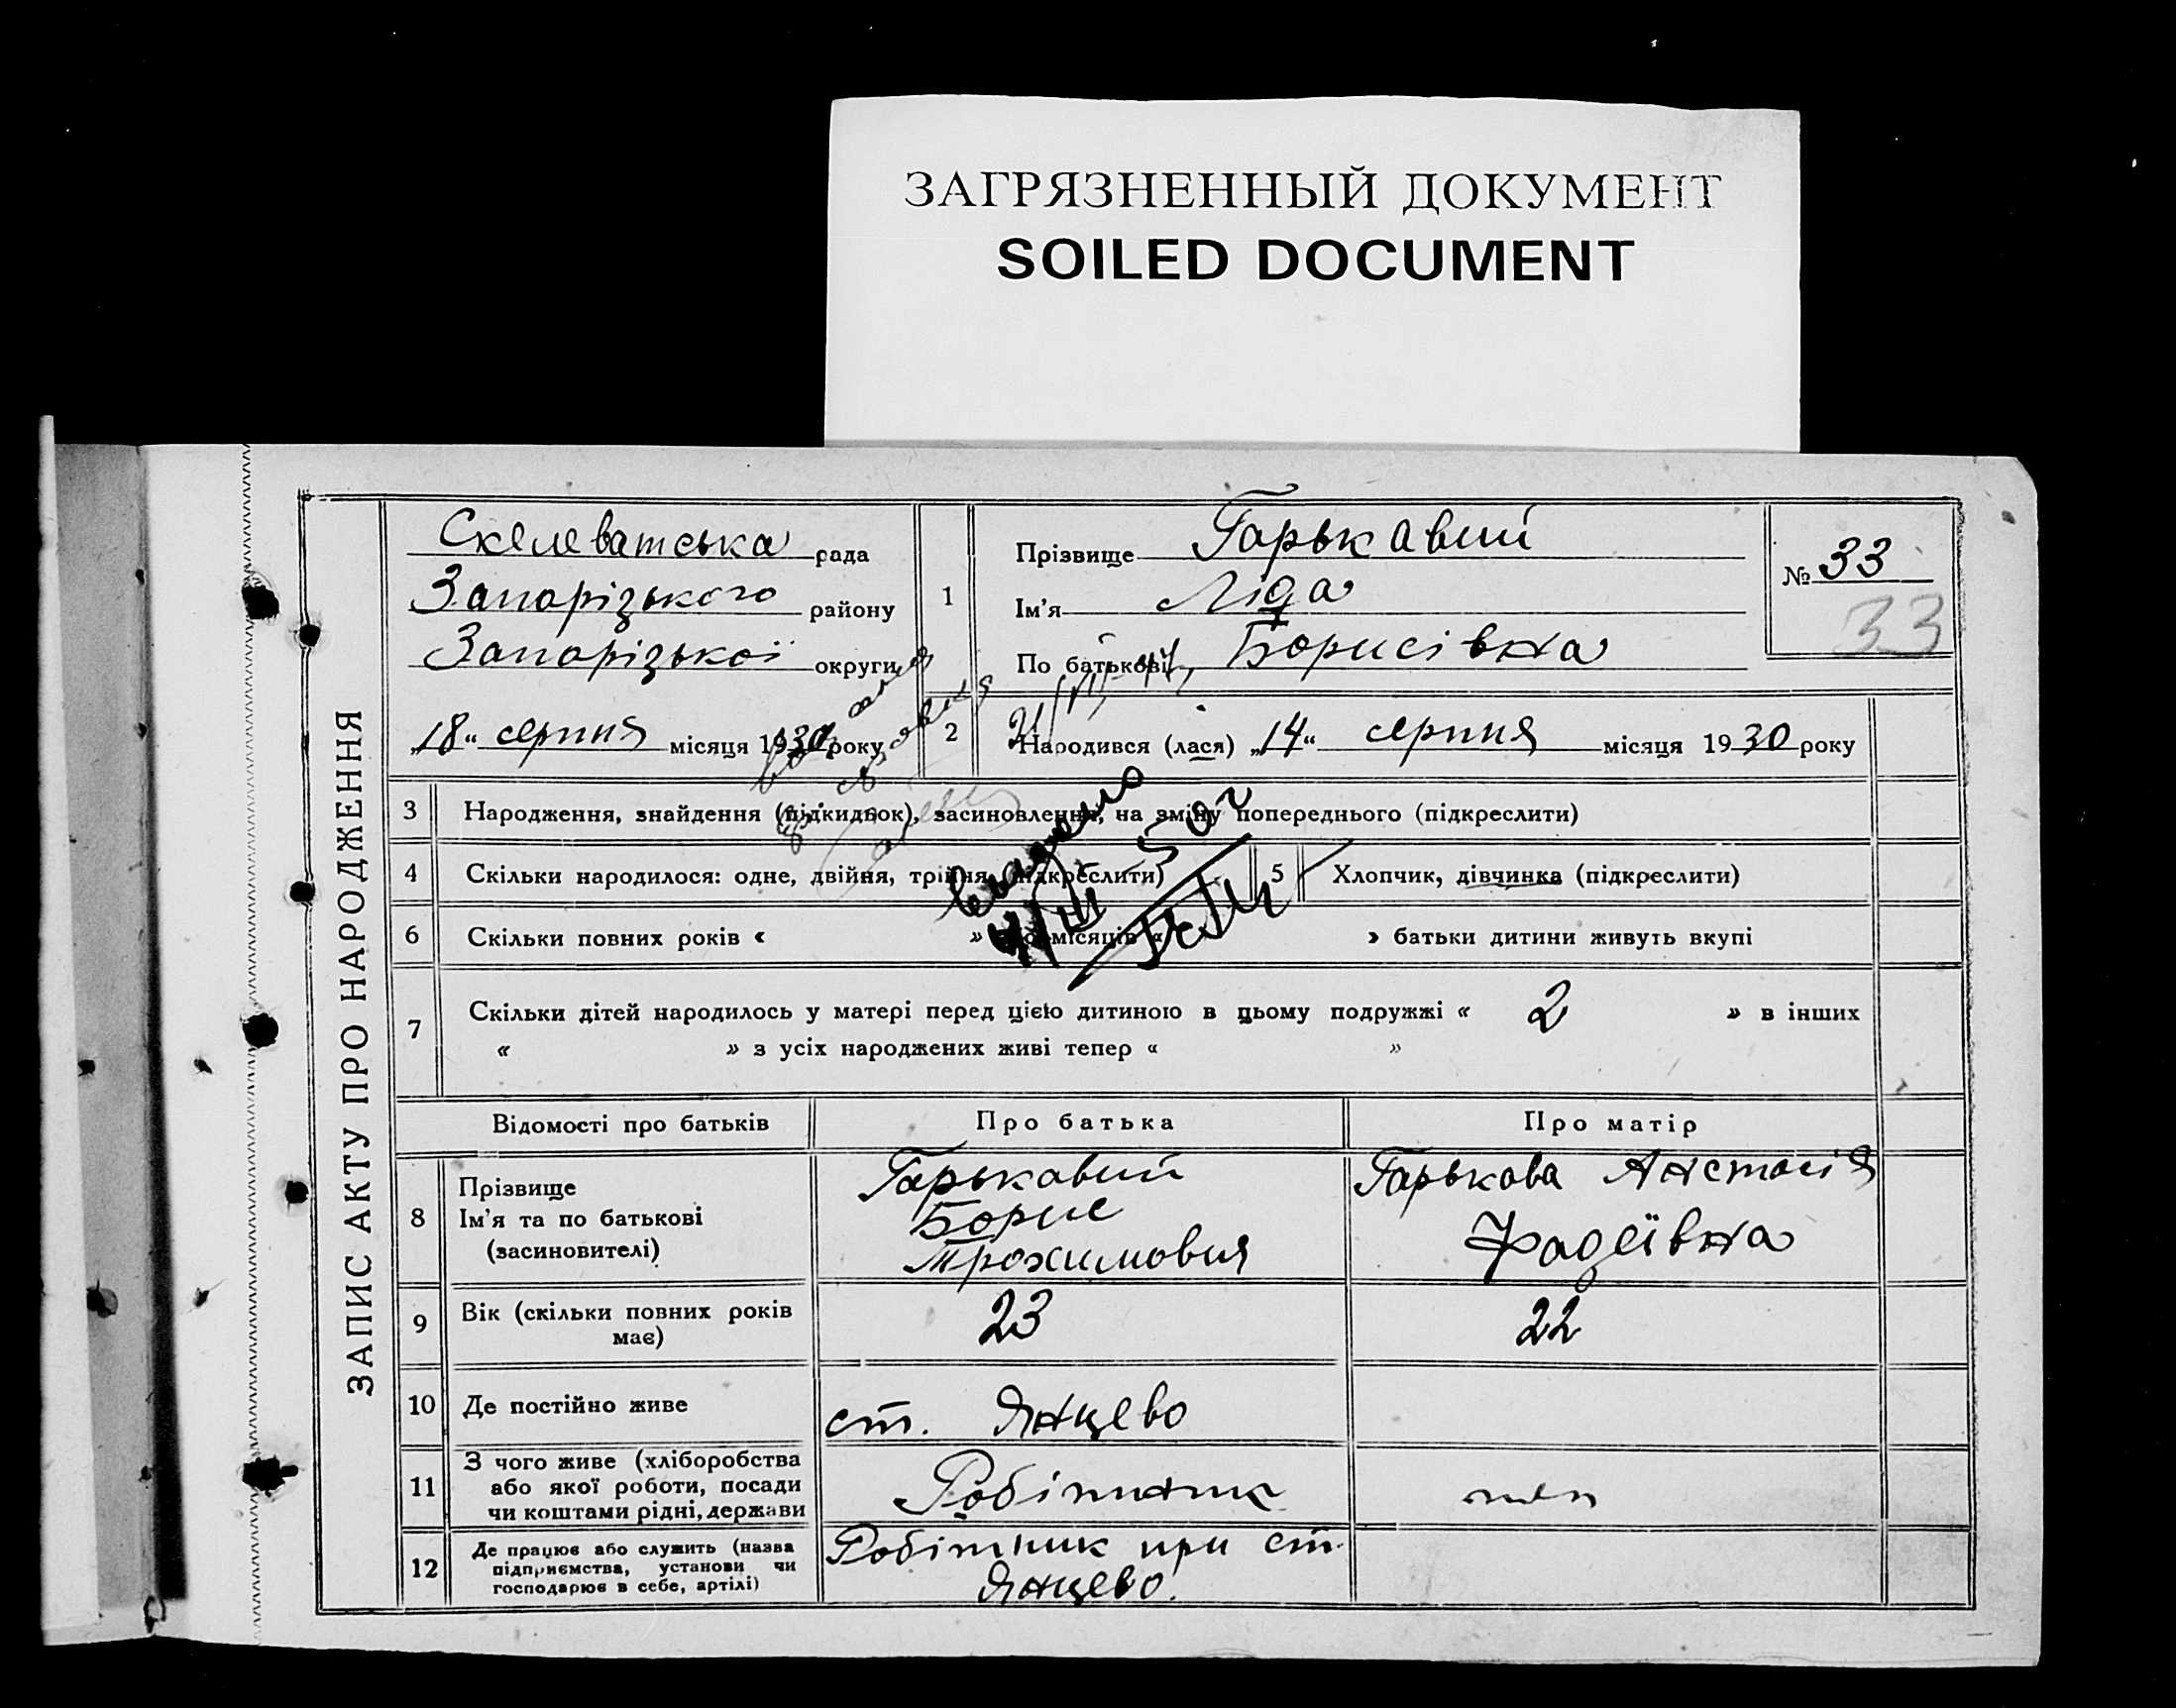 ЗАГРЯЗНЕННЫЙ ДОКУМЕНТ
SOILED DOCUMENT
ЗАПИС АКТУ ПРО НАРОДЖЕННЯ
Скелеватська рада
Запорізького району
Запорізької округи
„18“ серпня місяця 1930 року
1
Прізвище Гарькавий
Ім'я Ліда
По батькові Борисівна
№ 33
33
2 Народився (лася) „14“ серпня місяця 1930 року
3 Народження, знайдення (підкидьок), засиновлення, на зміну попереднього (підкреслити)
4 Скільки народилося: одне, двійня, трійня (підкреслити)
5 Хлопчик, дівчинка (підкреслити)
6 Скільки повних років « » місяців « » батьки дитини живуть вкупі
7 Скільки дітей народилось у матері перед цією дитиною в цьому подружжі « 2 » в інших
« » з усіх народжених живі тепер « »
Відомості про батьків Про батька Про матір
8 Прізвище
Ім'я та по батькові
(засиновителі)
Гарькавий
Борис
Трохимович
Гарькова Анстасія
Фадеївна
9 Вік (скільки повних років
має)
23
22
10 Де постійно живе
ст. Янцево
11 З чого живе (хліборобства
або якої роботи, посади
чи коштами рідні, держави
Робітник
12 Де працює або служить (назва
підприємства, установи чи
господарює в себе, артілі)
Робітник при ст.
Янцево.